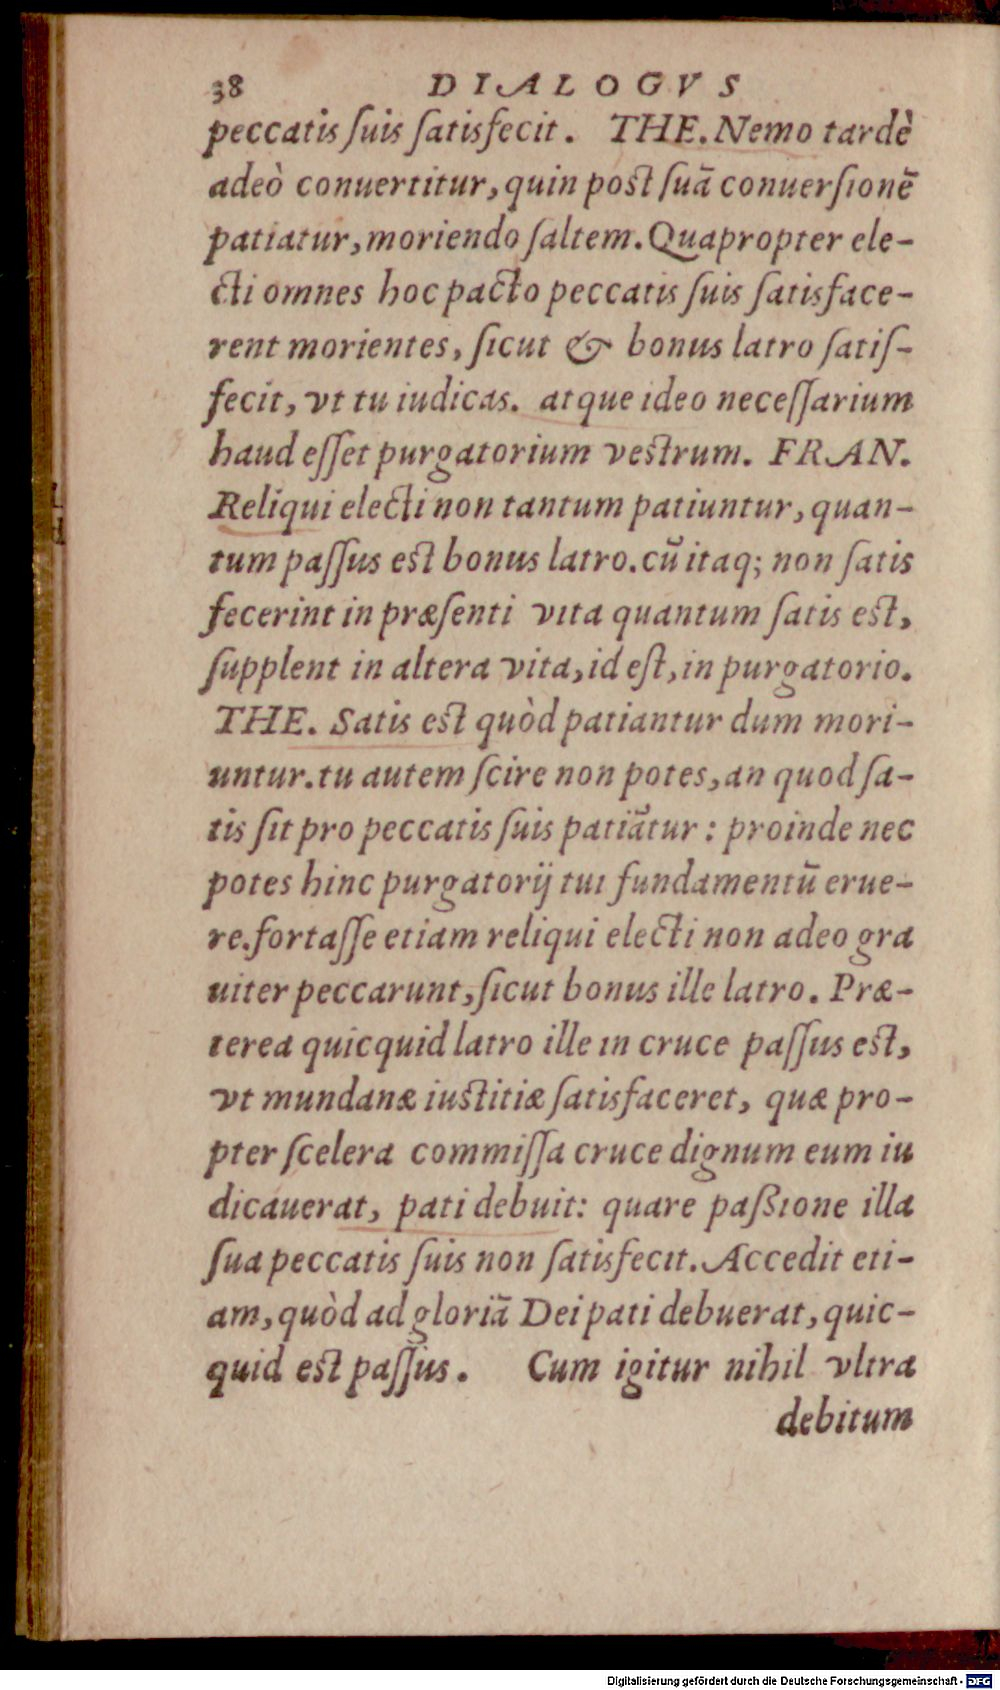 38 DIALOGVS
peccatis ſuis ſatisfecit. THE. Nemo tardè
adeò conuertitur, quin post ſuā conuerſionē
patiatur, moriendo ſaltem. Quapropter ele-
cti omnes hoc pacto peccatis ſuis ſatisface-
rent morientes, ſicut & bonus latro ſatiſ-
fecit, vt tu iudicas. atque ideo neceſſarium
haud eſſet purgatorium vestrum. FRAN.
Reliqui electi non tantum patiuntur, quan-
tum paſſus est bonus latro. cū itaq; non ſatis
fecerint in præſenti vita quantum ſatis est,
ſupplent in altera vita, id eſt, in purgatorio.
THE. Satis est quòd patiantur dum mori-
untur. tu autem ſcire non potes, an quod ſa-
tis ſit pro peccatis ſuis patiātur: proinde nec
potes hinc purgatorij tui fundamentū erue-
re. fortaſſe etiam reliqui electi non adeo gra
uiter peccarunt, ſicut bonus ille latro. Præ-
terea quicquid latro ille in cruce paſſus est,
vt mundanæ iustitiæ ſatisfaceret, quæ pro-
pter ſcelera commiſſa cruce dignum eum iu
dicauerat, pati debuit: quare paßione illa
ſua peccatis ſuis non ſatisfecit. Accedit eti-
am, quòd ad gloriā Dei pati debuerat, quic-
quid est paſſus. Cum igitur nihil vltra
debitum
Digitalisierung gefördert durch die Deutsche Forschungsgemeinschaft - DFG